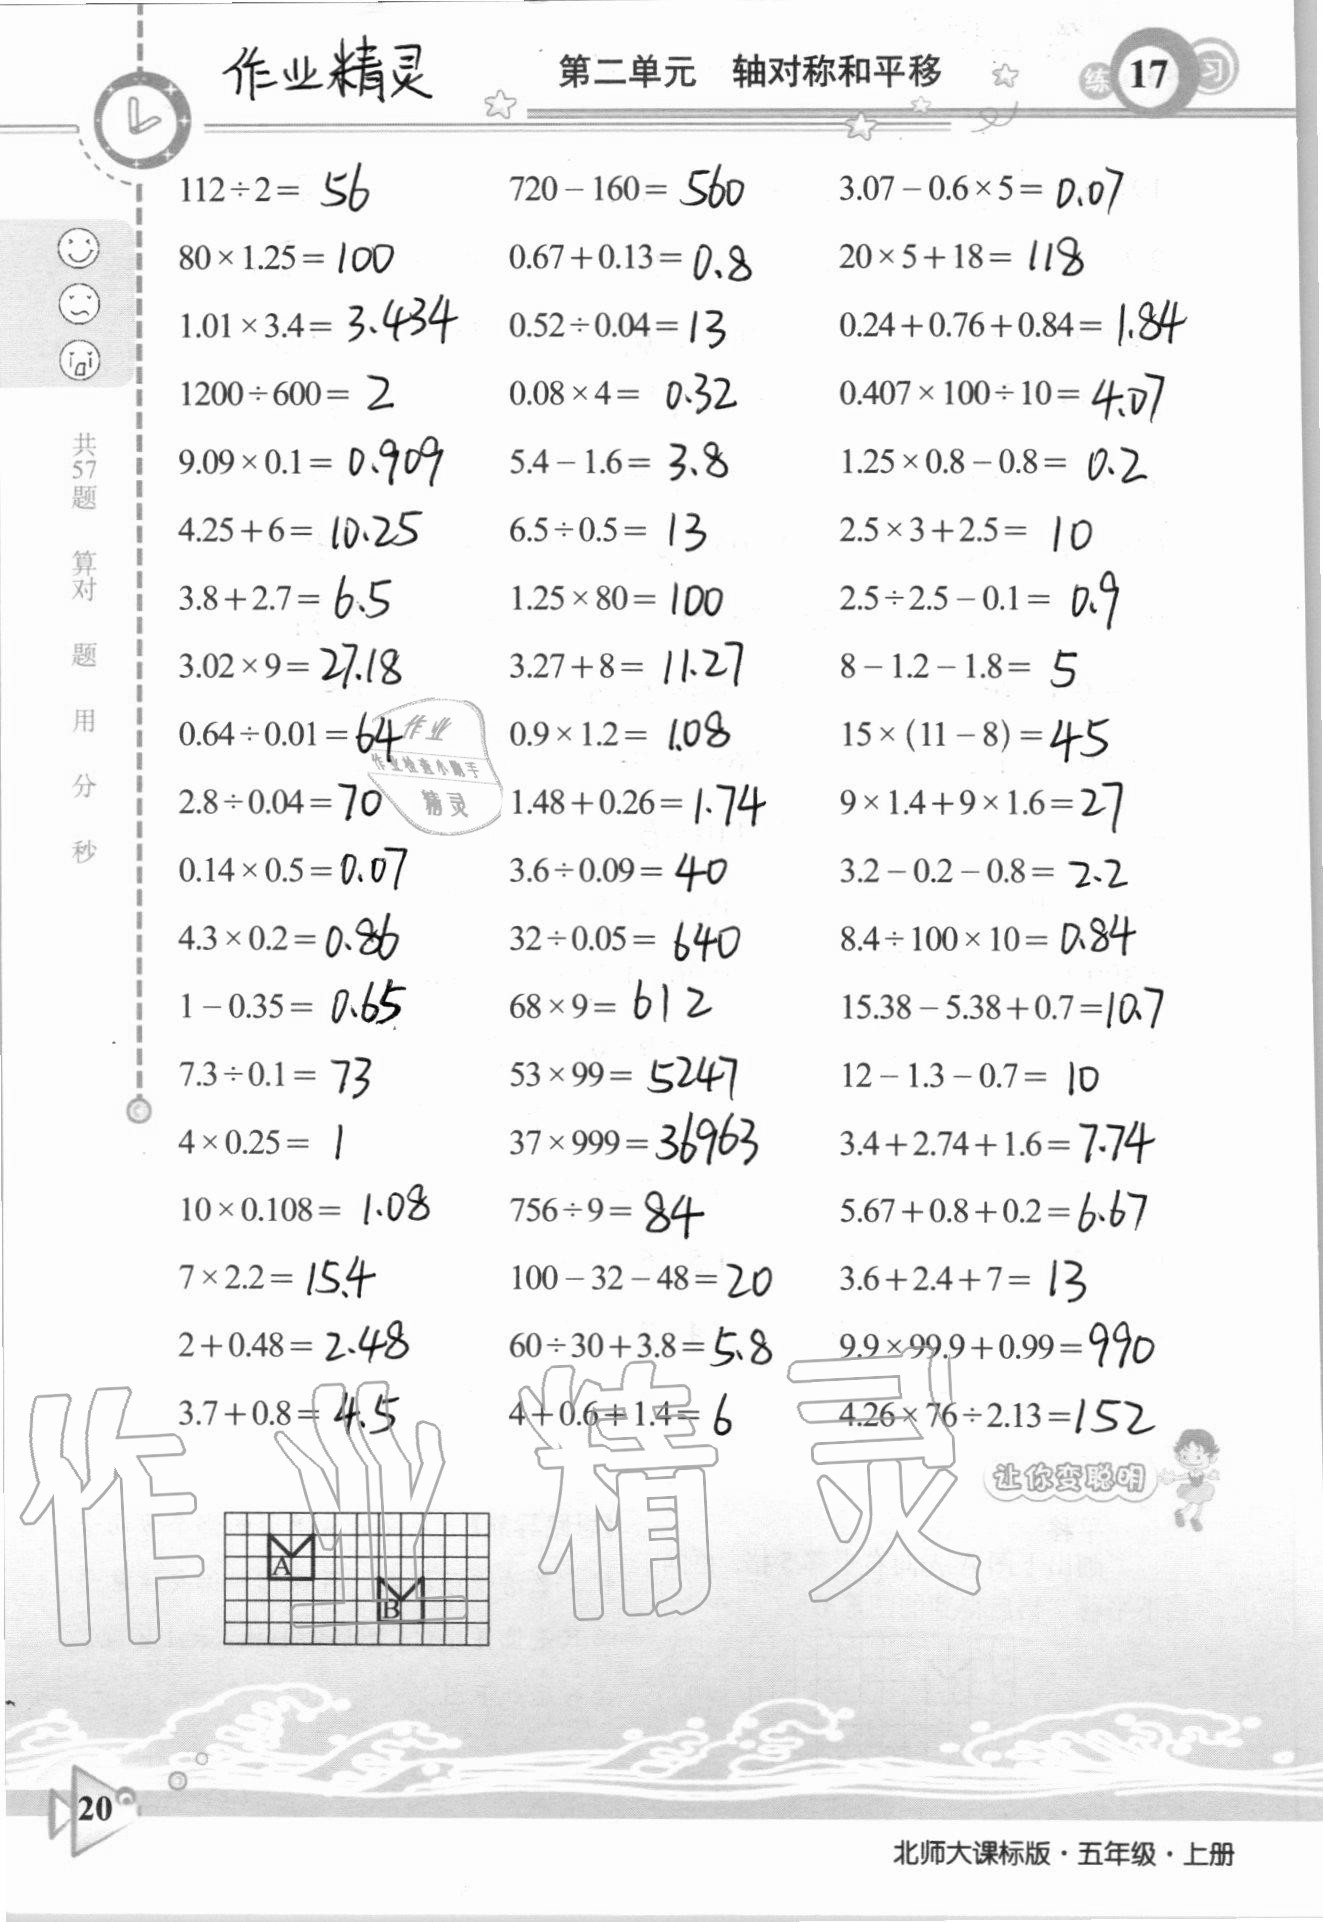 作业精灵 第二单元 轴对称和平移 练 17 习
112÷2= 56 720-160= 560 3.07-0.6×5= 0.07
80×1.25= 100 0.67+0.13= 0.8 20×5+18= 118
1.01×3.4= 3.434 0.52÷0.04= 13 0.24+0.76+0.84= 1.84
1200÷600= 2 0.08×4= 0.32 0.407×100÷10= 4.07
9.09×0.1= 0.909 5.4-1.6= 3.8 1.25×0.8-0.8= 0.2
4.25+6= 10.25 6.5÷0.5= 13 2.5×3+2.5= 10
3.8+2.7= 6.5 1.25×80= 100 2.5÷2.5-0.1= 0.9
3.02×9= 27.18 3.27+8= 11.27 8-1.2-1.8= 5
0.64÷0.01= 64 0.9×1.2= 1.08 15×(11-8)= 45
2.8÷0.04= 70 1.48+0.26= 1.74 9×1.4+9×1.6= 27
0.14×0.5= 0.07 3.6÷0.09= 40 3.2-0.2-0.8= 2.2
4.3×0.2= 0.86 32÷0.05= 640 8.4÷100×10= 0.84
1-0.35= 0.65 68×9= 612 15.38-5.38+0.7= 10.7
7.3÷0.1= 73 53×99= 5247 12-1.3-0.7= 10
4×0.25= 1 37×999= 36963 3.4+2.74+1.6= 7.74
10×0.108= 1.08 756÷9= 84 5.67+0.8+0.2= 6.67
7×2.2= 15.4 100-32-48= 20 3.6+2.4+7= 13
2+0.48= 2.48 60÷30+3.8= 5.8 9.9×99.9+0.99= 990
3.7+0.8= 4.5 4+0.6+1.4= 6 4.26×76÷2.13= 152
共57题 算对 题 用 分 秒
作业
作业检查小助手
精灵
作业精灵
让你变聪明
A
B
20
北师大课标版·五年级·上册